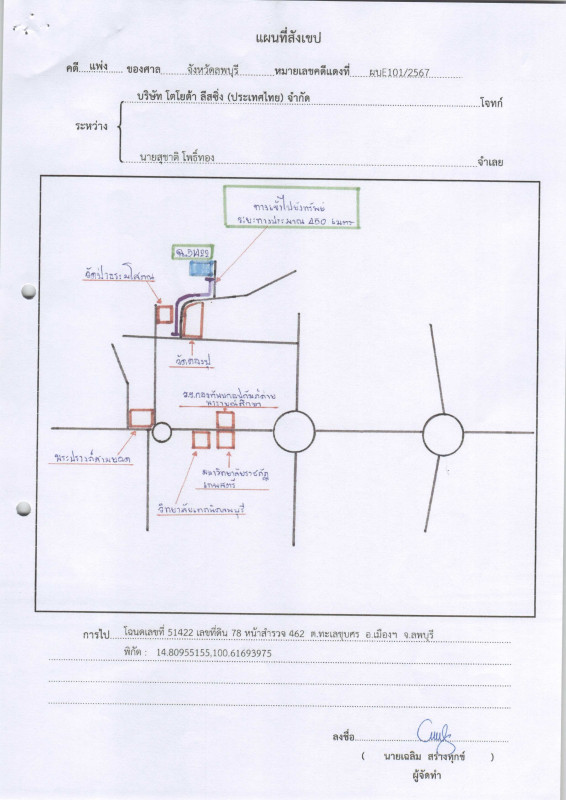 แผนที่สังเขป
คดี แพ่ง ของศาล จังหวัดลพบุรี หมายเลขคดีแดงที่ ผบE101/2567
บริษัท โตโยต้า ลีสซิ่ง (ประเทศไทย) จำกัด โจทก์
ระหว่าง
นายสุชาติ โพธิ์ทอง จำเลย
ทางเข้าไปยังทรัพย์
ระยะทางประมาณ 450 เมตร
ฉ.51422
วัดป่าธรรมโสภณ
วัดตองปุ
ร.ร.กองทัพบกอุปถัมภ์
นารายณ์ศึกษา
พระปรางค์สามยอด
มหาวิทยาลัยราชภัฏ
เทพสตรี
วิทยาลัยเทคนิคลพบุรี
การไป โฉนดเลขที่ 51422 เลขที่ดิน 78 หน้าสำรวจ 462 ต.ทะเลชุบศร อ.เมืองฯ จ.ลพบุรี
พิกัด : 14.80955155,100.61693975
ลงชื่อ
( นายเฉลิม สร่างทุกข์ )
ผู้จัดทำ